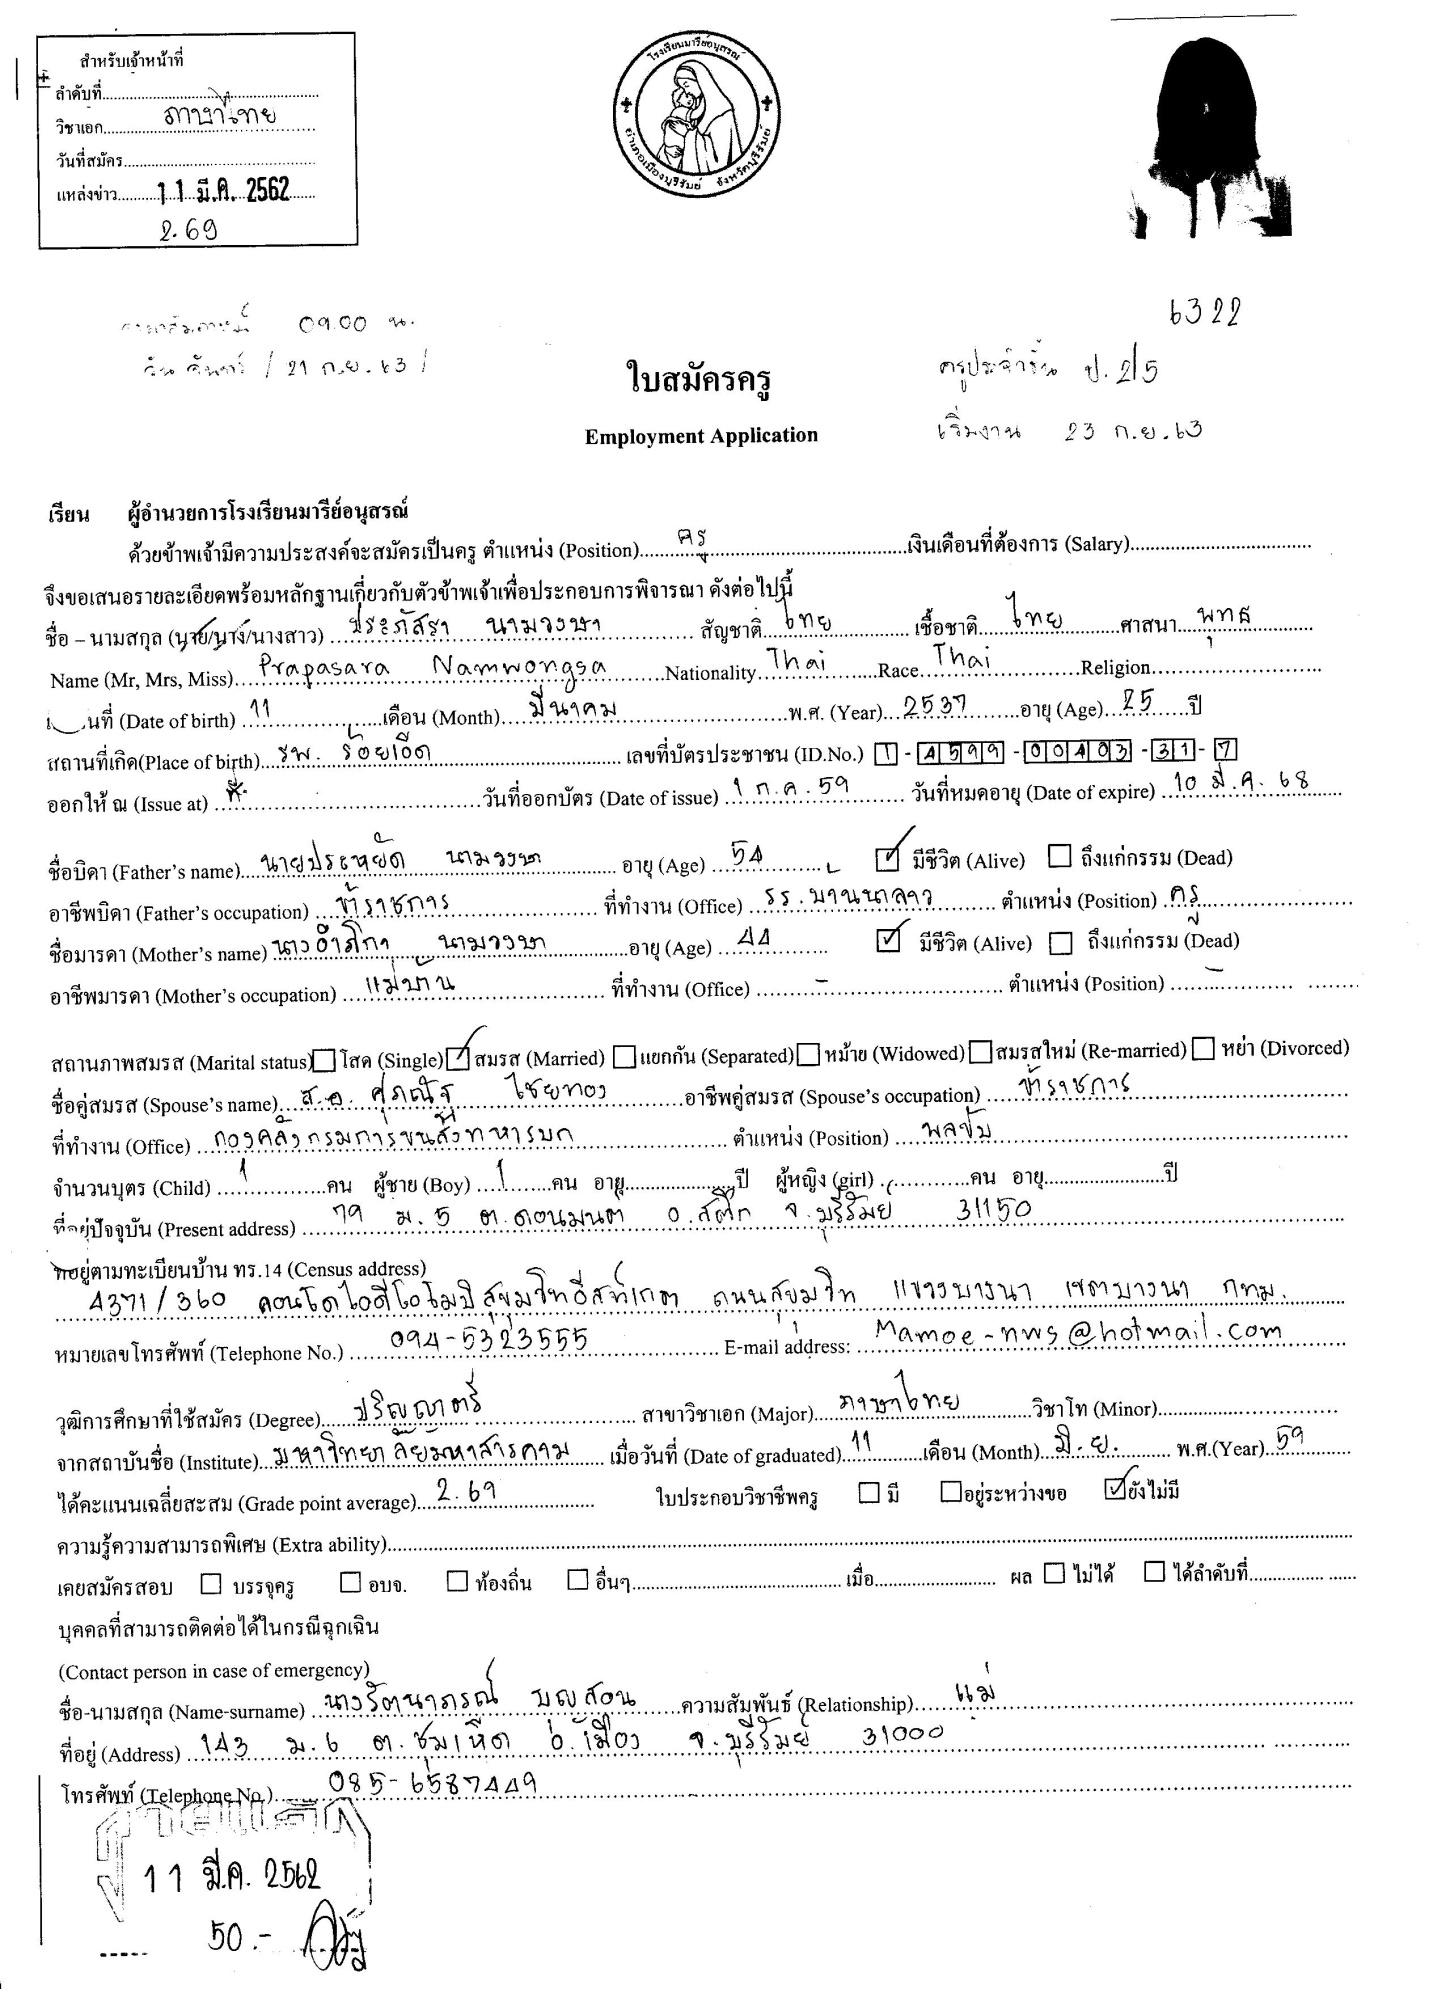 สำหรับเจ้าหน้าที่
ลำดับที่
วิชาเอก ภาษาไทย
วันที่สมัคร
แหล่งข่าว 11 มี.ค. 2562
2.69
โรงเรียนมารีย์อนุสรณ์
อำเภอเมืองบุรีรัมย์ จังหวัดบุรีรัมย์
6322
09.00 น.
วันจันทร์ / 21 ก.ย. 63 /
ครูประจำชั้น ป.2/5
เริ่มงาน 23 ก.ย. 63
ใบสมัครครู
Employment Application
เรียน ผู้อำนวยการโรงเรียนมารีย์อนุสรณ์
ด้วยข้าพเจ้ามีความประสงค์จะสมัครเป็นครู ตำแหน่ง (Position) ครู เงินเดือนที่ต้องการ (Salary)
จึงขอเสนอรายละเอียดพร้อมหลักฐานเกี่ยวกับตัวข้าพเจ้าเพื่อประกอบการพิจารณา ดังต่อไปนี้
ชื่อ – นามสกุล (นาย/นาง/นางสาว) ประภัสรา นามวงษา สัญชาติ ไทย เชื้อชาติ ไทย ศาสนา พุทธ
Name (Mr, Mrs, Miss) Prapasara Namwongsa Nationality Thai Race Thai Religion
นที่ (Date of birth) 11 เดือน (Month) มีนาคม พ.ศ. (Year) 2537 อายุ (Age) 25 ปี
สถานที่เกิด(Place of birth) รพ. ร้อยเอ็ด เลขที่บัตรประชาชน (ID.No.) 1-4599-00403-31-7
ออกให้ ณ (Issue at) วันที่ออกบัตร (Date of issue) 1 ก.ค. 59 วันที่หมดอายุ (Date of expire) 10 มี.ค. 68
ชื่อบิดา (Father's name) นายประหยัด นามวงษา อายุ (Age) 54 มีชีวิต (Alive) ถึงแก่กรรม (Dead)
อาชีพบิดา (Father's occupation) ข้าราชการ ที่ทำงาน (Office) รร.บ้านนาลาว ตำแหน่ง (Position) ครู
ชื่อมารดา (Mother's name) นางอำภิกา นามวงษา อายุ (Age) 44 มีชีวิต (Alive) ถึงแก่กรรม (Dead)
อาชีพมารดา (Mother's occupation) แม่บ้าน ที่ทำงาน (Office) - ตำแหน่ง (Position) -
สถานภาพสมรส (Marital status) โสด (Single) สมรส (Married) แยกกัน (Separated) หม้าย (Widowed) สมรสใหม่ (Re-married) หย่า (Divorced)
ชื่อคู่สมรส (Spouse's name) ส.อ. ศุภณัฐ ไชยทอง อาชีพคู่สมรส (Spouse's occupation) ข้าราชการ
ที่ทำงาน (Office) กองคลังกรมการขนส่งทหารบก ตำแหน่ง (Position) พลขับ
จำนวนบุตร (Child) 1 คน ผู้ชาย (Boy) 1 คน อายุ ปี ผู้หญิง (girl) คน อายุ ปี
ที่อยู่ปัจจุบัน (Present address) 79 ม.5 ต.ดอนมนต์ อ.สตึก จ.บุรีรัมย์ 31150
ที่อยู่ตามทะเบียนบ้าน ทร.14 (Census address)
4371/360 คอนโดไอดีโอโมบิสุขุมวิทอีสท์เกต ถนนสุขุมวิท แขวงบางนา เขตบางนา กทม.
หมายเลขโทรศัพท์ (Telephone No.) 094-5323555 E-mail address: Mamoe-nws@hotmail.com
วุฒิการศึกษาที่ใช้สมัคร (Degree) ปริญญาตรี สาขาวิชาเอก (Major) ภาษาไทย วิชาโท (Minor)
จากสถาบันชื่อ (Institute) มหาวิทยาลัยมหาสารคาม เมื่อวันที่ (Date of graduated) 11 เดือน (Month) มิ.ย. พ.ศ.(Year) 59
ได้คะแนนเฉลี่ยสะสม (Grade point average) 2.69 ใบประกอบวิชาชีพครู มี อยู่ระหว่างขอ ยังไม่มี
ความรู้ความสามารถพิเศษ (Extra ability)
เคยสมัครสอบ บรรจุครู อบจ. ท้องถิ่น อื่นๆ เมื่อ ผล ไม่ได้ ได้ลำดับที่
บุคคลที่สามารถติดต่อได้ในกรณีฉุกเฉิน
(Contact person in case of emergency)
ชื่อ-นามสกุล (Name-surname) นางรัตนาภรณ์ บุญสอน ความสัมพันธ์ (Relationship) แม่
ที่อยู่ (Address) 143 ม.6 ต.ชุมเห็ด อ.เมือง จ.บุรีรัมย์ 31000
โทรศัพท์ (Telephone No.) 085-6587449
11 มี.ค. 2562
50.-